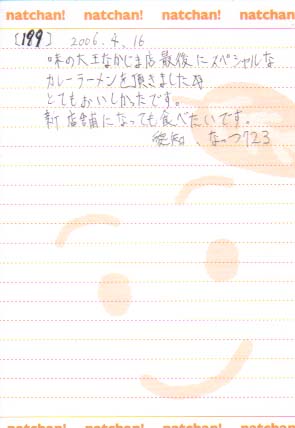 natchan! natchan! natchan! natchan!
[199] 2006.4.16
味の大王なかじま店最後にスペシャルな
カレーラーメンを頂きました
とてもおいしかったです。
新店舗になっても食べたいです。
、なっつ723
natchan! natchan! natchan! natchan!